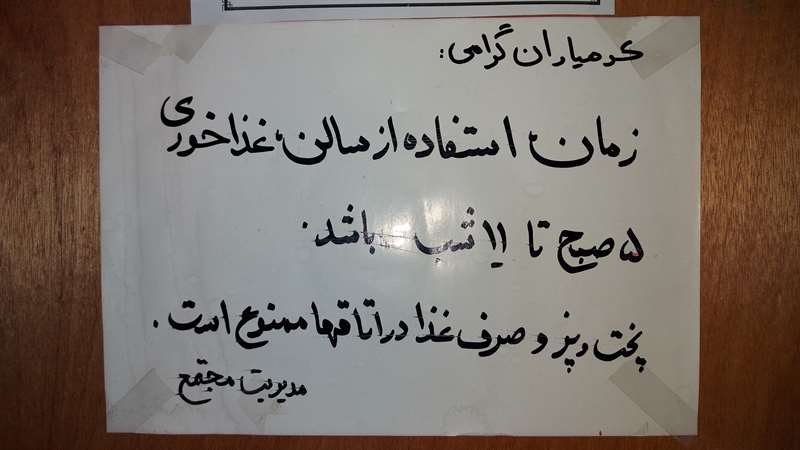 کوهیاران گرامی:
زمان استفاده از سالن غذاخوری
۵ صبح تا ۱۱ شب باشد.
پخت و پز و صرف غذا در اتاقها ممنوع است.
مدیریت مجتمع